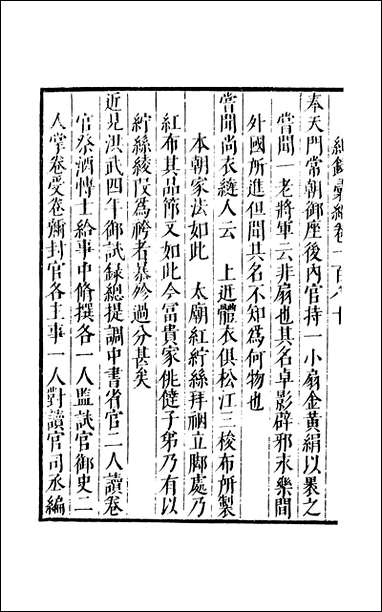 紀錄彙編卷一百八十
奉天門常朝御座後內官持一小扇金黃絹以裹之
嘗聞一老將軍云非扇也其名卓影辟邪永樂間
外國所進但聞其名不知為何物也
嘗聞尚衣縫人云　上近體衣俱松江三梭布所製
本朝家法如此　太廟紅紵絲拜裀立脚處乃
紅布其品節又如此今富貴家佻㒓子弟乃有以
紵絲綾叚為袴者暴殄過分甚矣
近見洪武四年御試録總提調中書省官二人讀卷
官祭酒博士給事中脩撰各一人監試官御史二
人掌卷受卷彌封官各主事一人對讀官司丞編